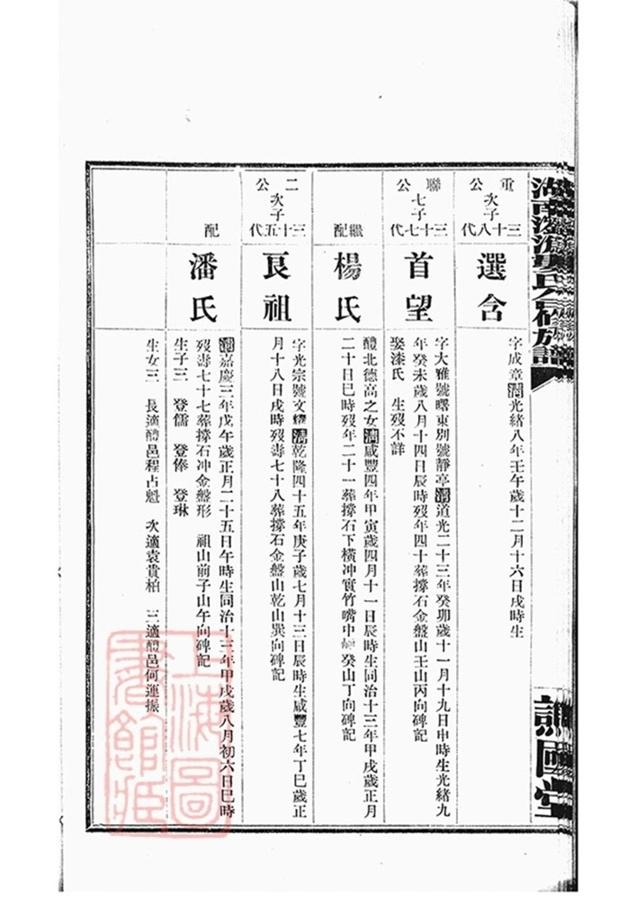 重公次子三十八代
選含
字成章清光緒八年壬午歲十二月十六日戌時生
聯公七子三十七代
首望
字大雅號曙東別號靜亭清道光二十三年癸卯歲十一月十九日申時生光緒九
年癸未歲八月十四日辰時歿年四十葬撐石金盤山壬山丙向碑記
娶漆氏 生歿不詳
繼配
楊氏
醴北德高之女清咸豐四年甲寅歲四月十一日辰時生同治十三年甲戌歲正月
二十日巳時歿年二十一葬撐石下橫冲實竹嘴中 癸山丁向碑記
二公次子三十五代
良祖
字光宗號文 清乾隆四十五年庚子歲七月十三日辰時生咸豐七年丁巳歲正
月十八日戌時歿壽七十八葬撐石金盤山乾山巽向碑記
配
潘氏
清嘉慶三年戊午歲正月二十五日午時生同治十三年甲戌歲八月初六日巳時
歿壽七十七葬撐石冲金盤形 祖山前子山午向碑記
生子三 登儒 登俸 登琳
生女三 長適醴邑程占魁 次適袁貴柏 三適醴邑何運振
上海圖書館藏